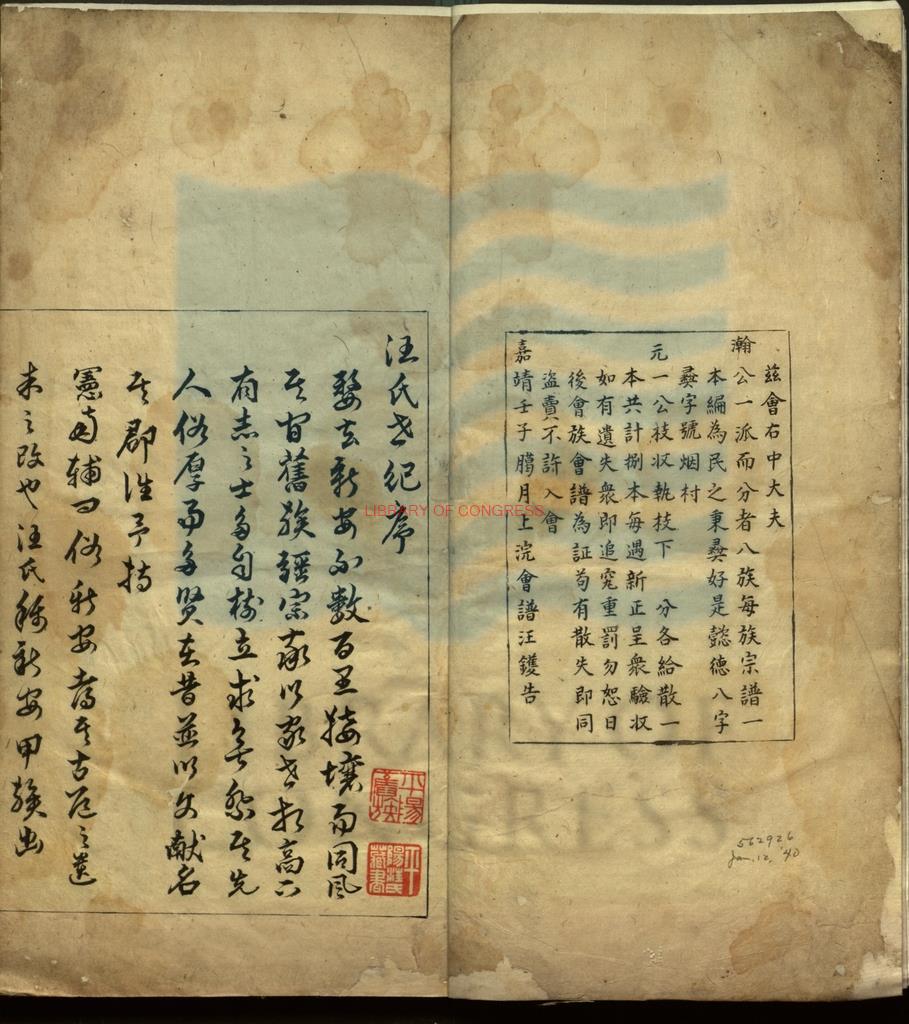 茲會右中大夫
瀚公一派而分者八族每族宗譜一
本編為民之秉彝好是懿德八字
彝字號烟村
元一公枝收執枝下 分各給散一
本共計捌本每遇新正呈衆驗收
如有遺失衆即追究重罰勿恕日
後會族會譜為証苟有散失即同
盜賣不許入會
嘉靖壬子臈月上浣會譜汪鑊告
562926
Jan. 12, '40
汪氏世紀序
婺去新安不數百里接壤而同風
其間舊族疆宗以家世相高
有志之士多自樹立求無忝其先
人俗厚而多賢在昔並以文献名
其郡往予持
憲南輔曰俗新安其古之遺
未之改也汪氏稱新安甲族出
平陽汪氏藏書
LIBRARY OF CONGRESS